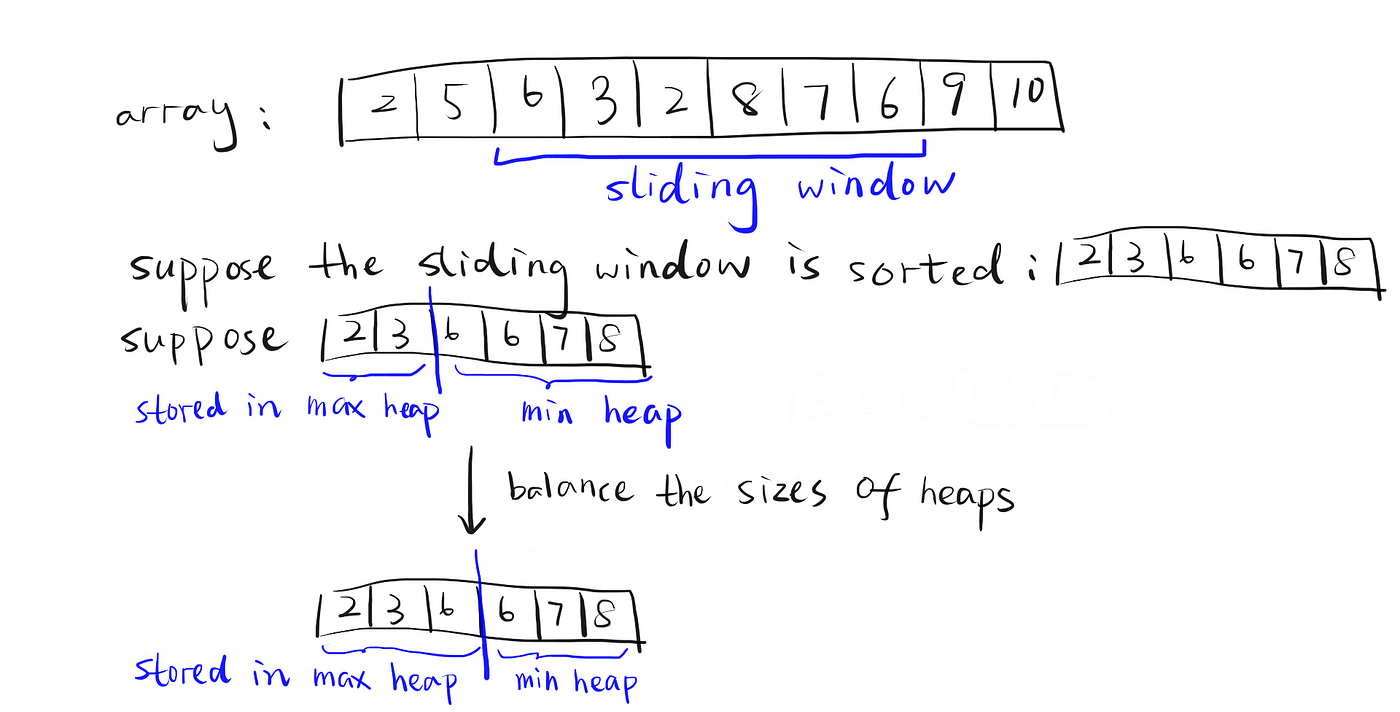 array: 2 5 6 3 2 8 7 6 9 10
sliding window
suppose the sliding window is sorted: 2 3 6 6 7 8
suppose 2 3 6 6 7 8
stored in max heap min heap
balance the sizes of heaps
2 3 6 6 7 8
stored in max heap min heap